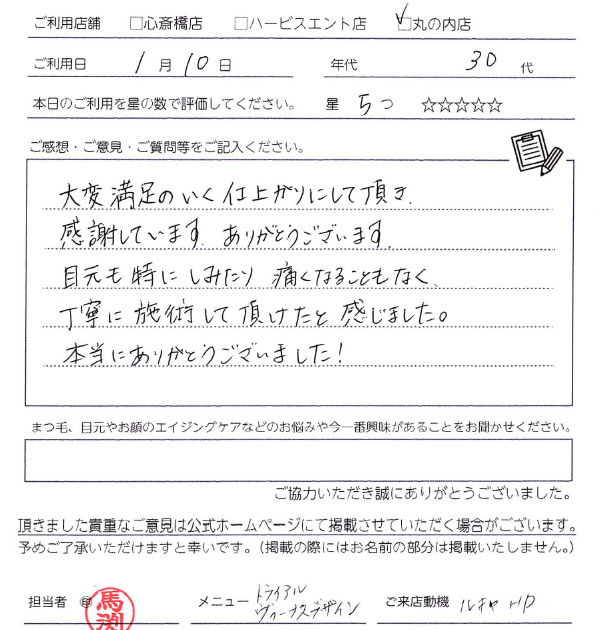 ご利用店舗 □心斎橋店 □ハービスエント店 ☑丸の内店
ご利用日 1月10日 年代 30代
本日のご利用を星の数で評価してください。 星 5つ ☆☆☆☆☆
ご感想・ご意見・ご質問等をご記入ください。
大変満足のいく仕上がりにして頂き、
感謝しています。ありがとうございます。
目元も特にしみたり 痛くなることもなく、
丁寧に施術して頂けたと感じました。
本当にありがとうございました!
まつ毛、目元やお顔のエイジングケアなどのお悩みや今一番興味があることをお聞かせください。
ご協力いただき誠にありがとうございました。
頂きました貴重なご意見は公式ホームページにて掲載させていただく場合がございます。
予めご了承いただけますと幸いです。(掲載の際にはお名前の部分は掲載いたしません。)
担当者 ㊞ 馬渕 メニュー トライアル ご来店動機 ルキャ HP
ヴィーナスデザイン